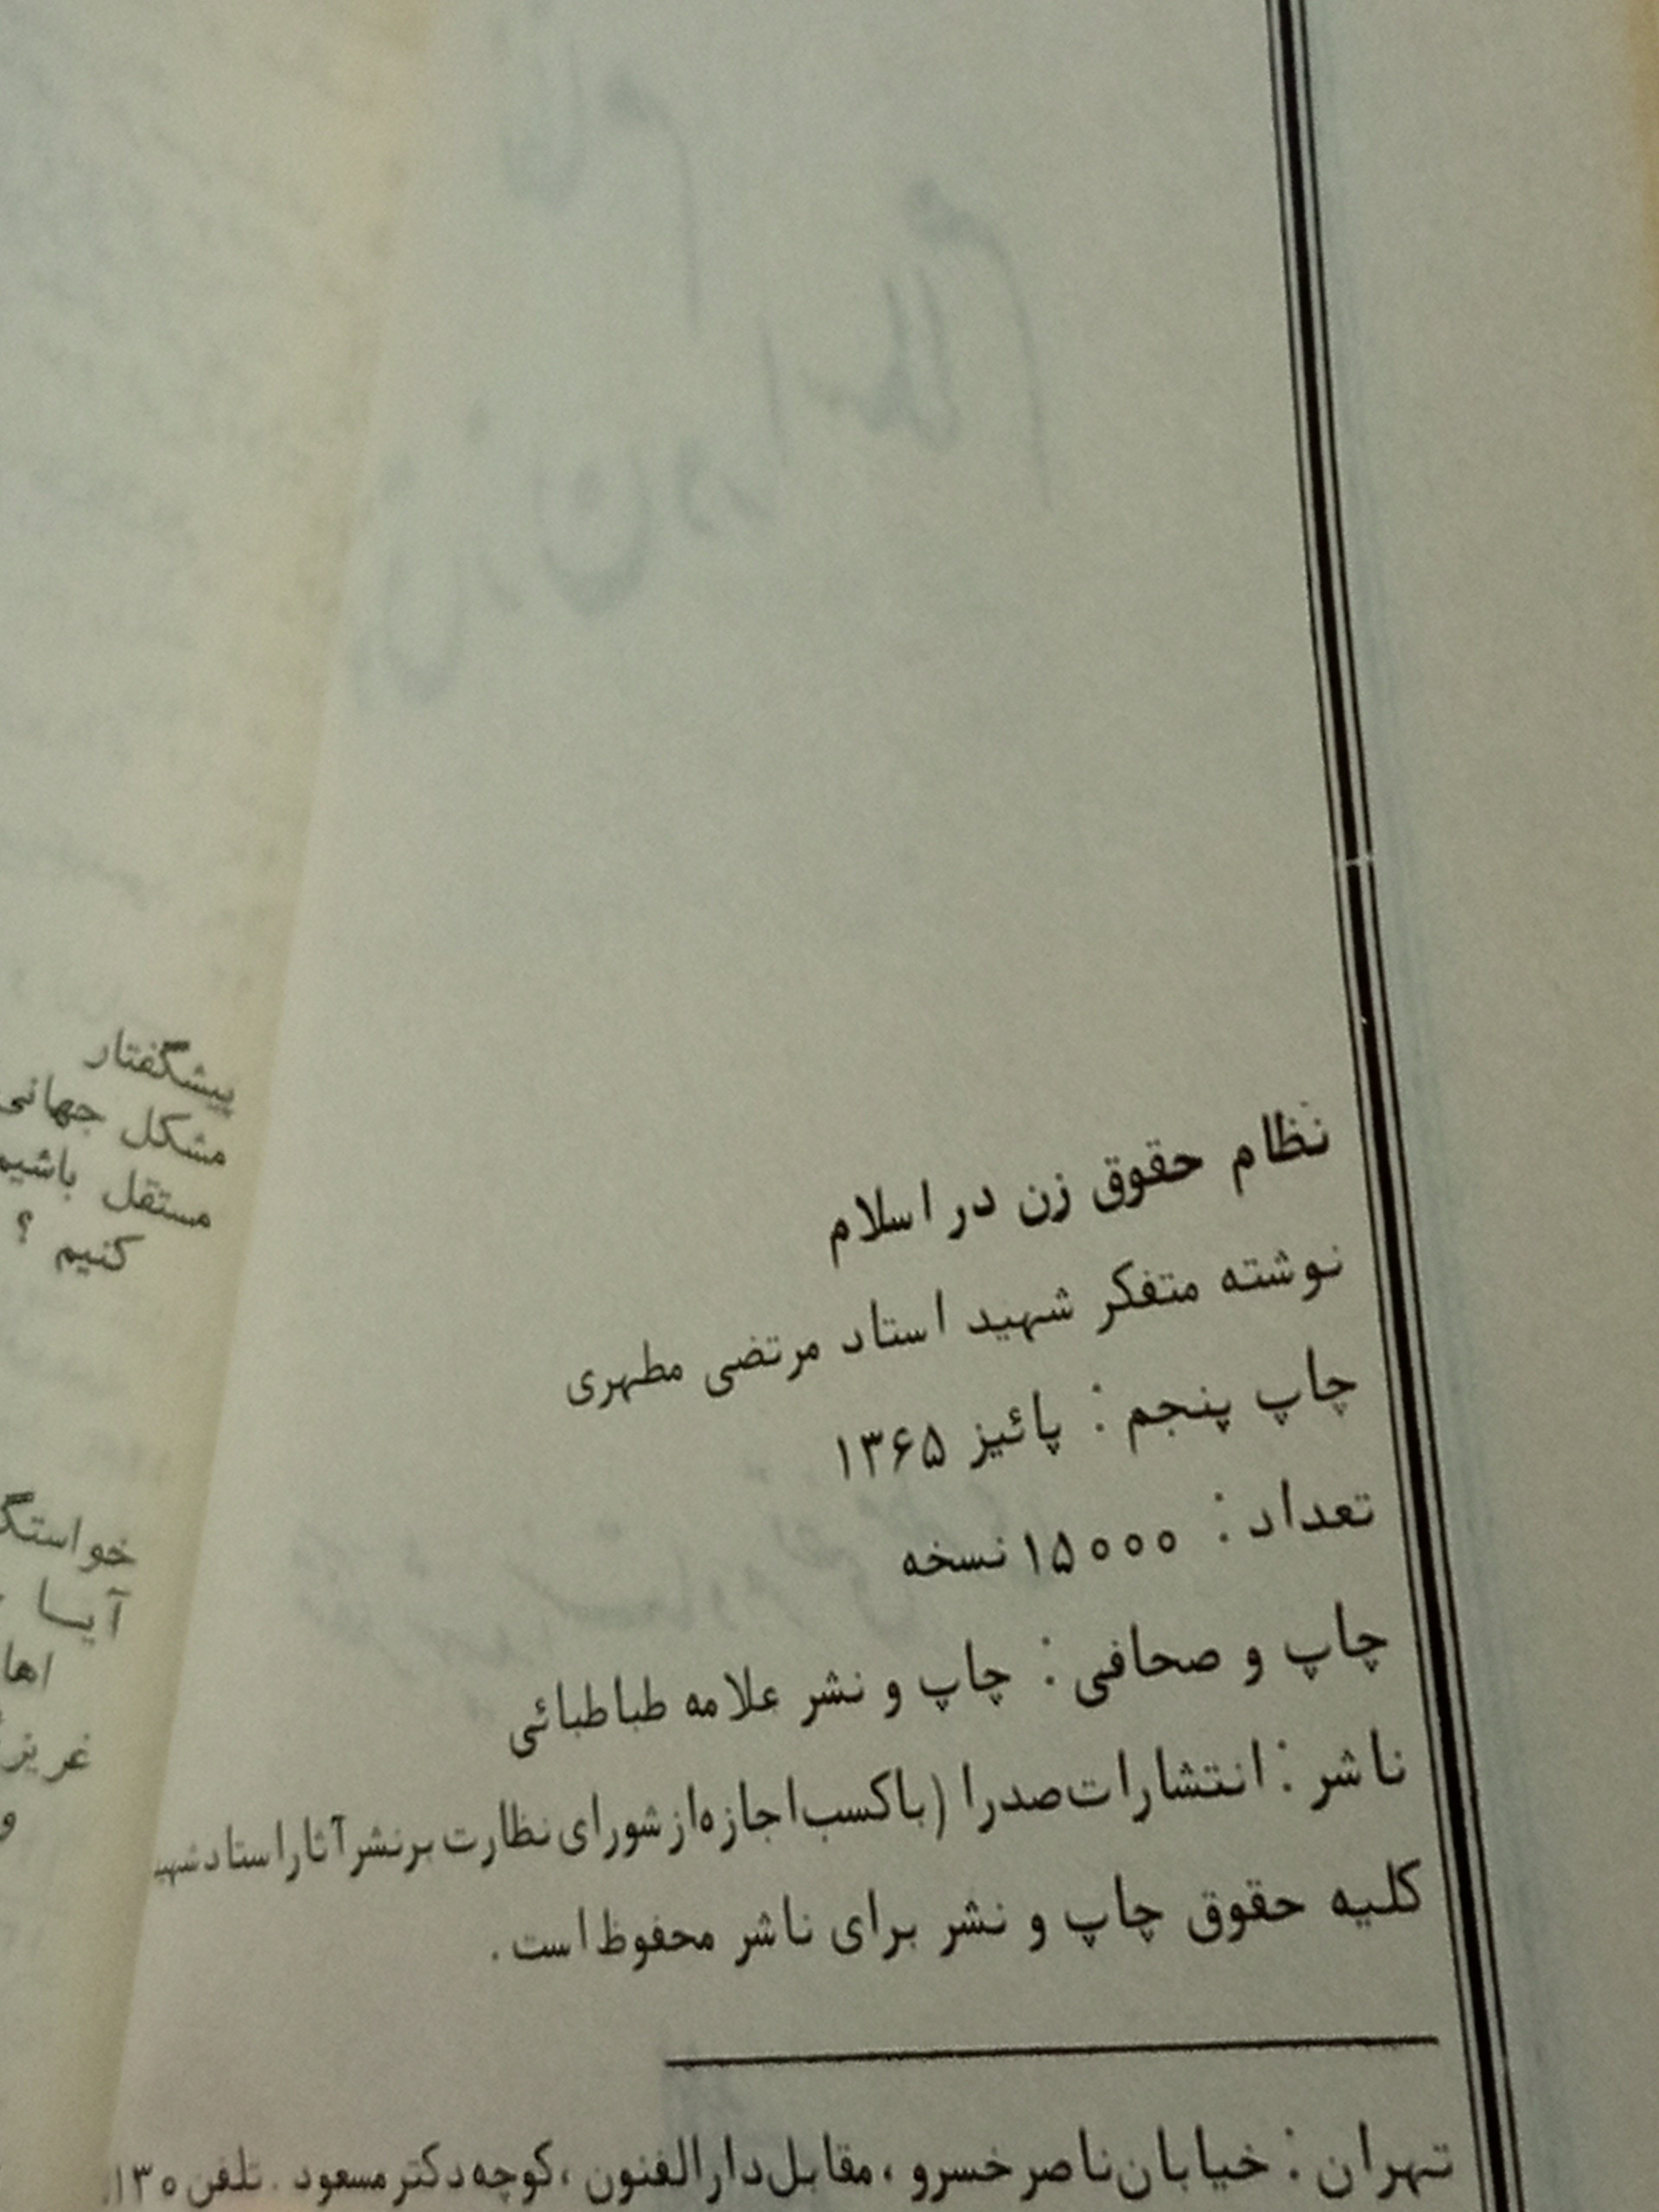 نظام حقوق زن در اسلام
نوشته متفکر شهید استاد مرتضی مطهری
چاپ پنجم : پائیز ۱۳۶۵
تعداد : ۱۵۰۰۰ نسخه
چاپ و صحافی : چاپ و نشر علامه طباطبائی
ناشر : انتشارات صدرا (با کسب اجازه از شورای نظارت بر نشر آثار استاد شهید
کلیه حقوق چاپ و نشر برای ناشر محفوظ است .
تهران : خیابان ناصرخسرو ، مقابل دارالفنون ، کوچه دکتر مسعود . تلفن ۱۳۰
پیشگفتار
مشکل جهانی
مستقل باشیم
کنیم ؟
آیا
و